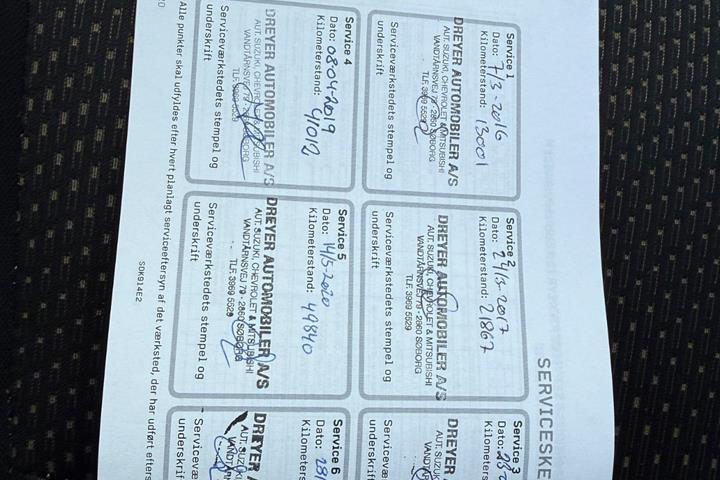 SERVICESKE
Service 1
Dato: 7/3-2016
Kilometerstand: 13001
DREYER AUTOMOBILER A/S
AUT. SUZUKI, CHEVROLET & MITSUBISHI
VANDTÅRNSVEJ 79 - 2860 SØBORG
TLF. 3969 5529
Serviceværkstedets stempel og
underskrift
Service 2
Dato: 24/3-2017
Kilometerstand: 21867
DREYER AUTOMOBILER A/S
AUT. SUZUKI, CHEVROLET & MITSUBISHI
VANDTÅRNSVEJ 79 - 2860 SØBORG
TLF. 3969 5529
Serviceværkstedets stempel og
underskrift
Service 3
Dato:
Kilometers
DREYER
AUT. SUZUK
VANDTÅ
Servicevæ
underskri
Service 4
Dato: 08-04-2019
Kilometerstand: 41012
DREYER AUTOMOBILER A/S
AUT. SUZUKI, CHEVROLET & MITSUBISHI
VANDTÅRNSVEJ 79 - 2860 SØBORG
TLF. 3969 5529
Serviceværkstedets stempel og
underskrift
Service 5
Dato: 14/5-2020
Kilometerstand: 49840
DREYER AUTOMOBILER A/S
AUT. SUZUKI, CHEVROLET & MITSUBISHI
VANDTÅRNSVEJ 79 - 2860 SØBORG
TLF. 3969 5529
Serviceværkstedets stempel og
underskrift
Service 6
Dato: 28/
Kilometers
DREYER A
AUT. SUZUK
VANDTÅRN
Serviceværk
underskrift
Alle punkter skal udfyldes efter hvert planlagt serviceeftersyn af det værksted, der har udført efters
SDK914E2